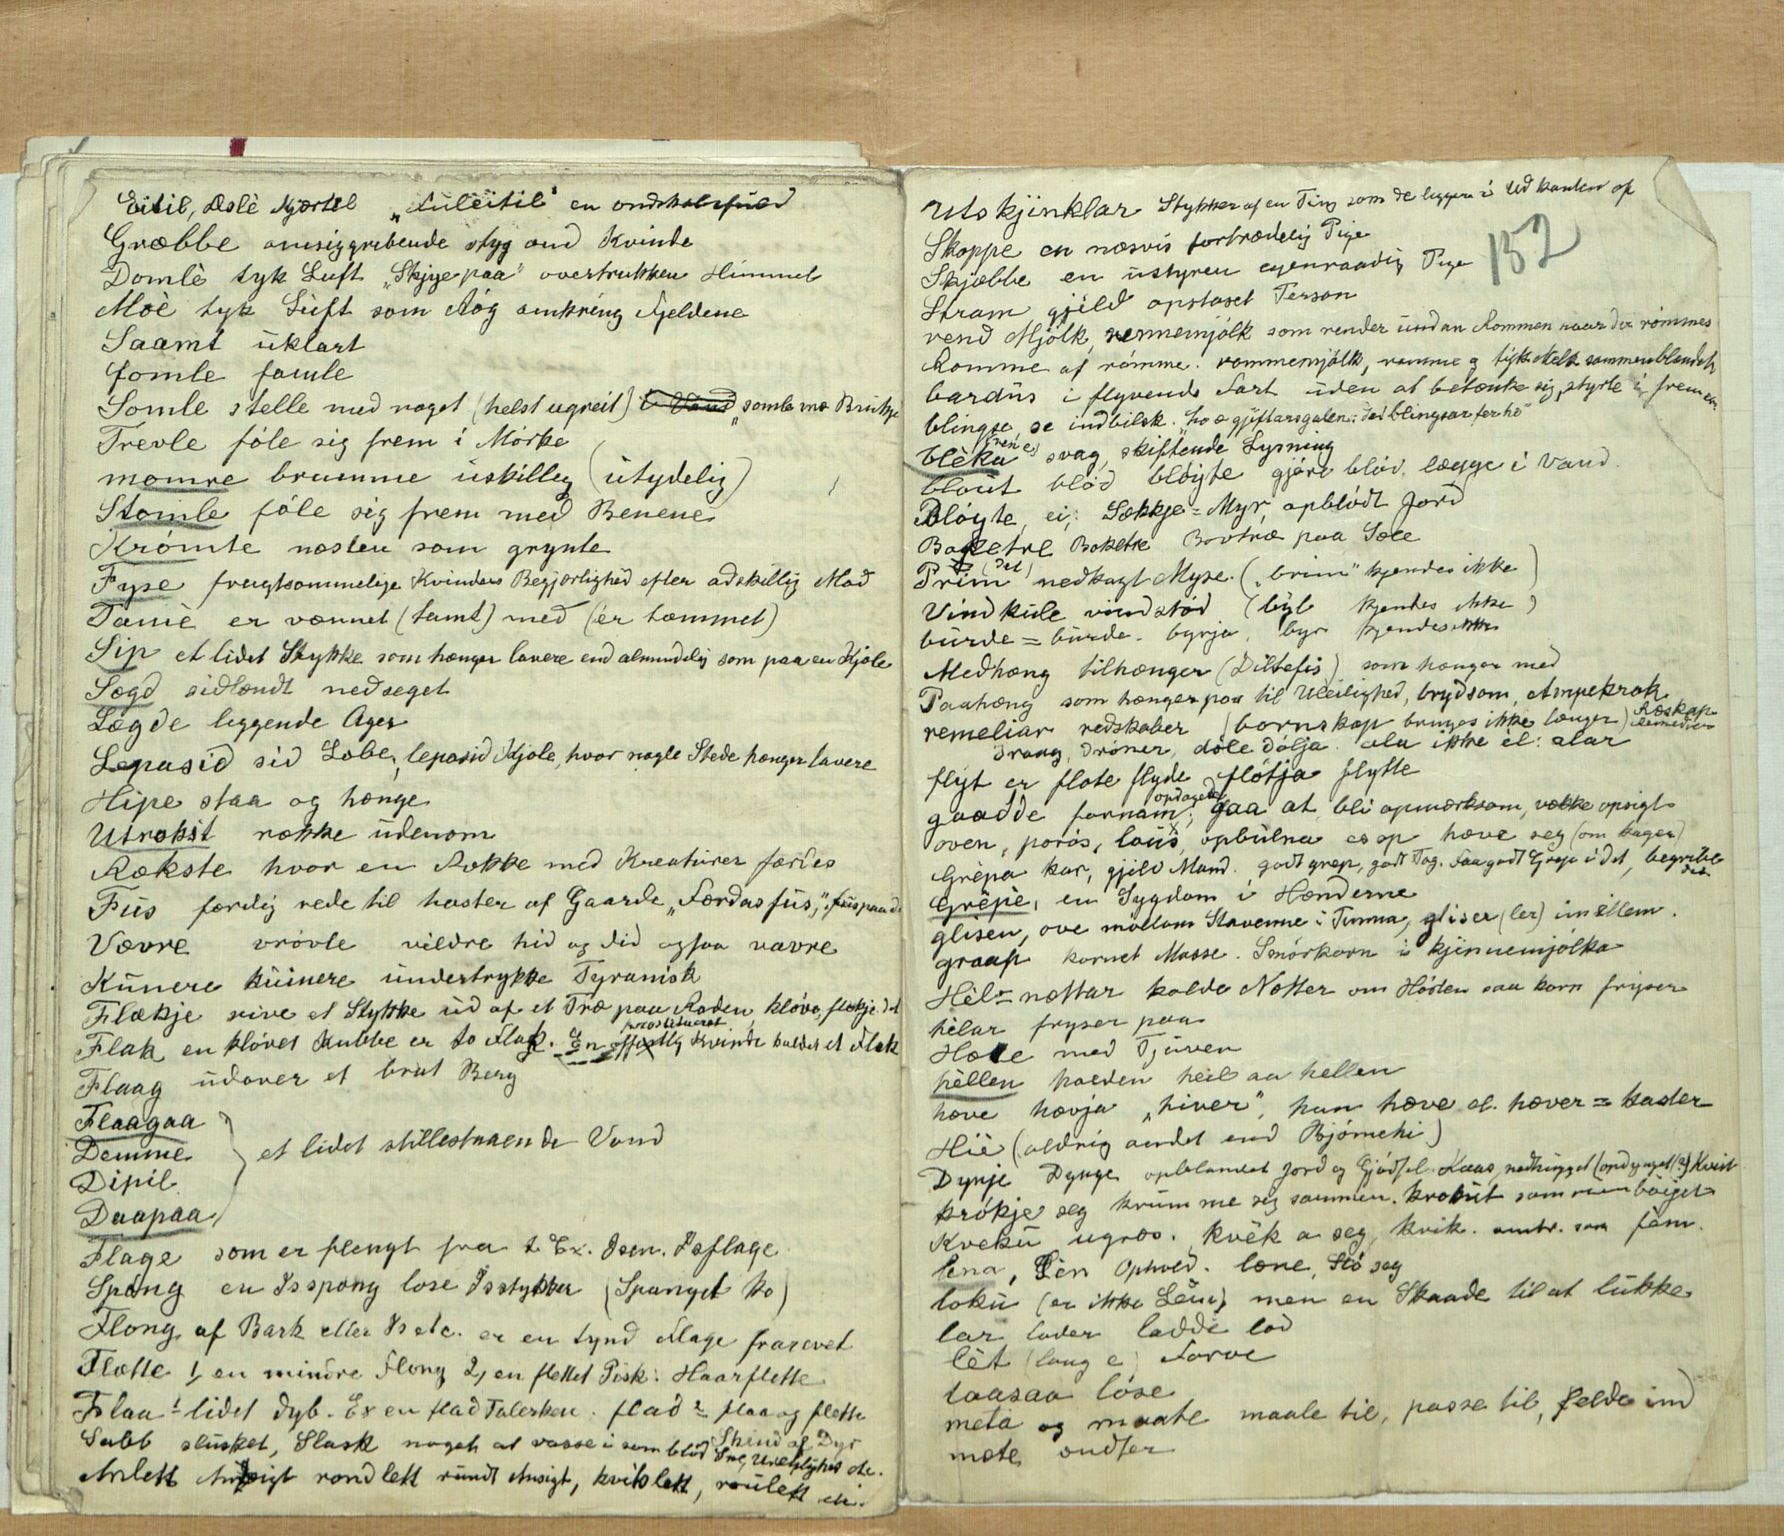 Eitil, Æslè Kjørtel „tuleitil" en ondskabsfuld
Græbbe omsiggribende styg ond Kvinde
Domlè tyk Luft „Skjye paa" overtrukken Himmel
Moè tyk Luft som Røg omkring Fjeldene
Saamt uklart
fomle famle
Somle stelle med noget (helst ugreit) „somle mæ Brukje
Trevle føle sig frem i Mörke
momre brumme uskilleg (utydelig)
Stomle føle sig frem med Benene
Krömte næsten som grynte
Fyse frugtsommelige Kvinders Begjærlighed efter adskillig Mad
Tamè er vænnet (tamt) med (er tæmmet)
Sip et lidet Stykke som hænger lavere end almindelig som paa en Kjole
Sægd sidlændt nedseget
Lægde liggende Ager
Lepasid sid Labe, lepasid Kjole, hvor nogle Stede hænger lavere
Hipe staa og hænge
Utrakst række udenom
Rækste hvor en Række med Kreaturer færdes
Fus færdig rede til haster af Gaarde „Færdas fus,"
Vævre vrövle vildre hid og did ogsaa vavre
Kunere kuinere undertrykke Tyranisk
Flækje rive et Stykke ud af et Træ paa Roden, klöve, flækje det
Flak en klövet Kubbe er to Flak. En prostitueret Kvinde kaldes et Flak
Flaag udover et brat Berg
Flaagaa
Demme et lidet stillestaaende Vand
Dipil
Daapaa
Flage som er flengt fra t. Ex. Isen. Isflage
Spong en Isspong lose Isstykker (Spanget Ko)
Flong af Bark eller Is etc. er en tynd Flage frarevet
Flætte 1, en mindre Flong 2, en flettet Pisk: Haarflette
Flaa 1 lidet dyb. Ex en flad Talerken. flad 2 flaa og flette
Skind af Dyr
Sabb slusket, Slask noget at vasse i som blöd Sne, Urenslighed etc.
Anlett Ansigt rondlett rundt Ansigt, kvitlett, raulett
Utskjinklar Stykker af en Ting som de ligger i Udkanten af
132
Skoppe en næsvis fortrædelig Pige
Skjæbbe en ustyren egenraadig Pige
Stram gjild opstaset Person
rend Mjölk, rennemjölk som render undan Rommen naar den römmes
Romme af römme. rommemjölk, romme og tyk Melk sammenblandet
bardus i flyvende Fart uden at betænke sig, styrte
blingse se indbilsk. "ho æ gjiftarsgalen: det blingsar fer hè"
blèku svag, skiftende Lysning
blout blöd blöyte gjöre blöd. lægge i Vand.
Blöyte, ei; Søkkje = Myr, opblödt Jord
Bogetre Boketre Bovtræ paa Sæle
Prim (det) nedkogt Myse. („brim" kjendes ikke)
Vindkule vindstöd (byl kjendes ikke)
burde = burde. byrja. byr kjendes ikke
Medhæng tilhænger (Diltefis) som hænger med
Paahæng som hænger paa til Uleilighed, brydsom, Ampekrok
remeliar redskaber (bornskap bruges ikke længer) Ræskap
draag, dröner, döle dölja. ala ikke èl: alar
flyt er flote flyde flötja flytte
gaadde fornam, opdagede gaa at, bli opmærksom, vække opsigt
oven, porös, laus, opbulna es op hæve seg (om kager)
Grèpa kar, gjild Mand. godt grep, godt Tag. Faa godt Greje i det, begribe det
Grèpè, en Sygdom i Hænderne
glisen, ove mellom Stavenne i Tunna, gliser (ler) imellem.
graap kornet Masse. Smörkorn i kjinnemjölka
Hèl = nættar kolde Nætter om Hösten saa korn fryser
hèlar fryser paa
Hæle med Tjuven
hèllen holden heil aa hellen
hæve hævja „hiver", hun hæve el. hæver = kaster
Hiè (aldrig andet end Bjömehi)
Dynje Dynge opblandet Jord og Gjödsel.
krökje seg krumme sig sammen. krokut som böiget
Kveku ugræs. kvèk a seg, kvik.
lena, Lèn Ophold. læne, Slö seg
loku (er ikke Lèu) men en Skaade til at lukke
lar lader ladde lod
lèt (lang e) Farve
laasaa löse
meta og maate maale til, passe til, felde ind
mæte